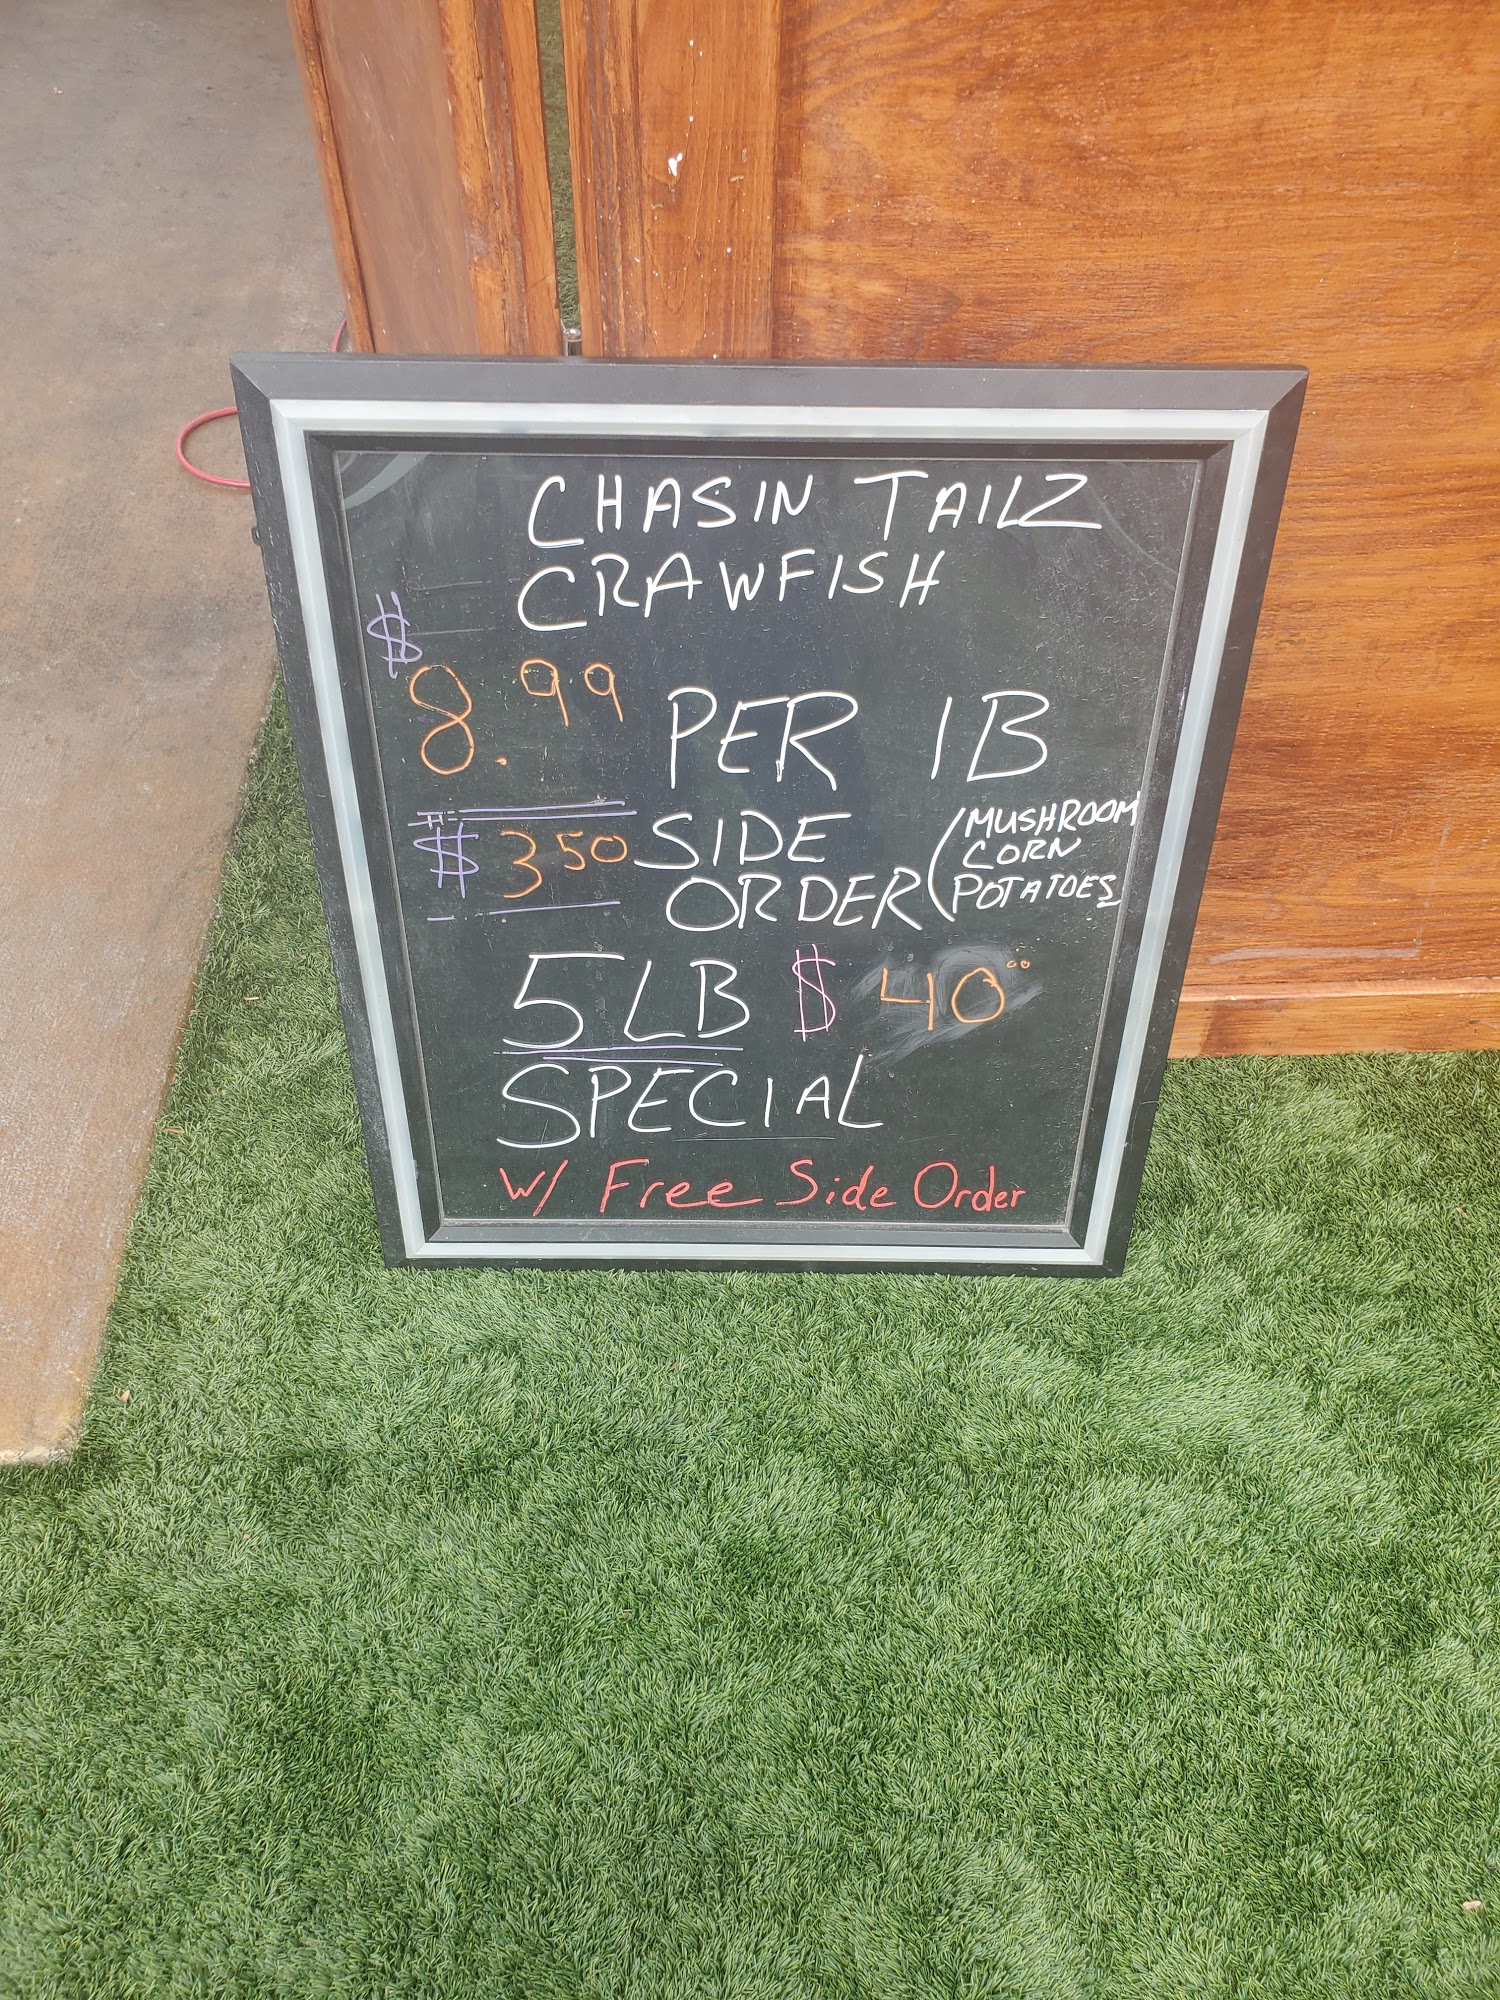 CHASIN TAILZ
CRAWFISH
$8.99 PER 1B
$3.50 SIDE ORDER (MUSHROOM
CORN
POTATOES
5LB $40.00
SPECIAL
W/ Free Side Order